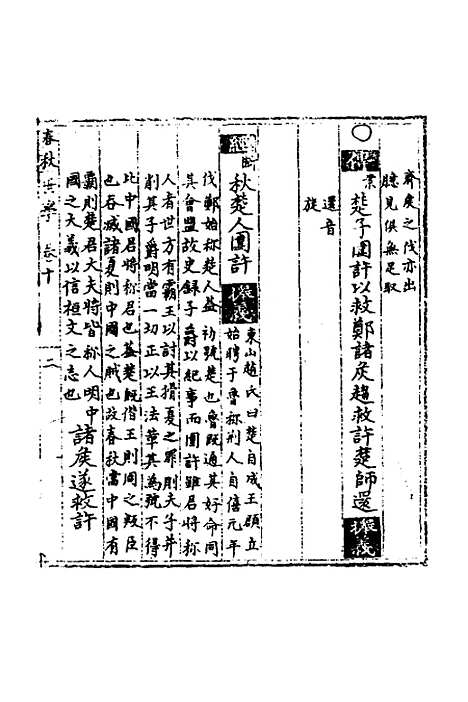 齊度之伐亦出
臆見俱無足取
傳業楚子圍許以救鄭諸侯趨救許楚師還 探義
還音
旋
經 秋楚人圍許 探義 東山趙氏曰楚自成王頵立
始聘于魯稱荆人自僖元年
伐鄭始稱楚人益初號楚也魯既通其好命同
其會盟故史録子爵以紀事而圍許雖君將称
人者世方有霸王以討其猾夏之罪則夫子并
削其子爵明當一切正以王法葦其為號不得
比中國君將称君也蓋楚既僣王則周之叛臣
也吞滅諸夏則中國之賊也故春秋當中國有
霸則楚君大夫將皆称人明中
國之大義以信桓文之志也
諸侯遂救許
春秋世學 卷十 二